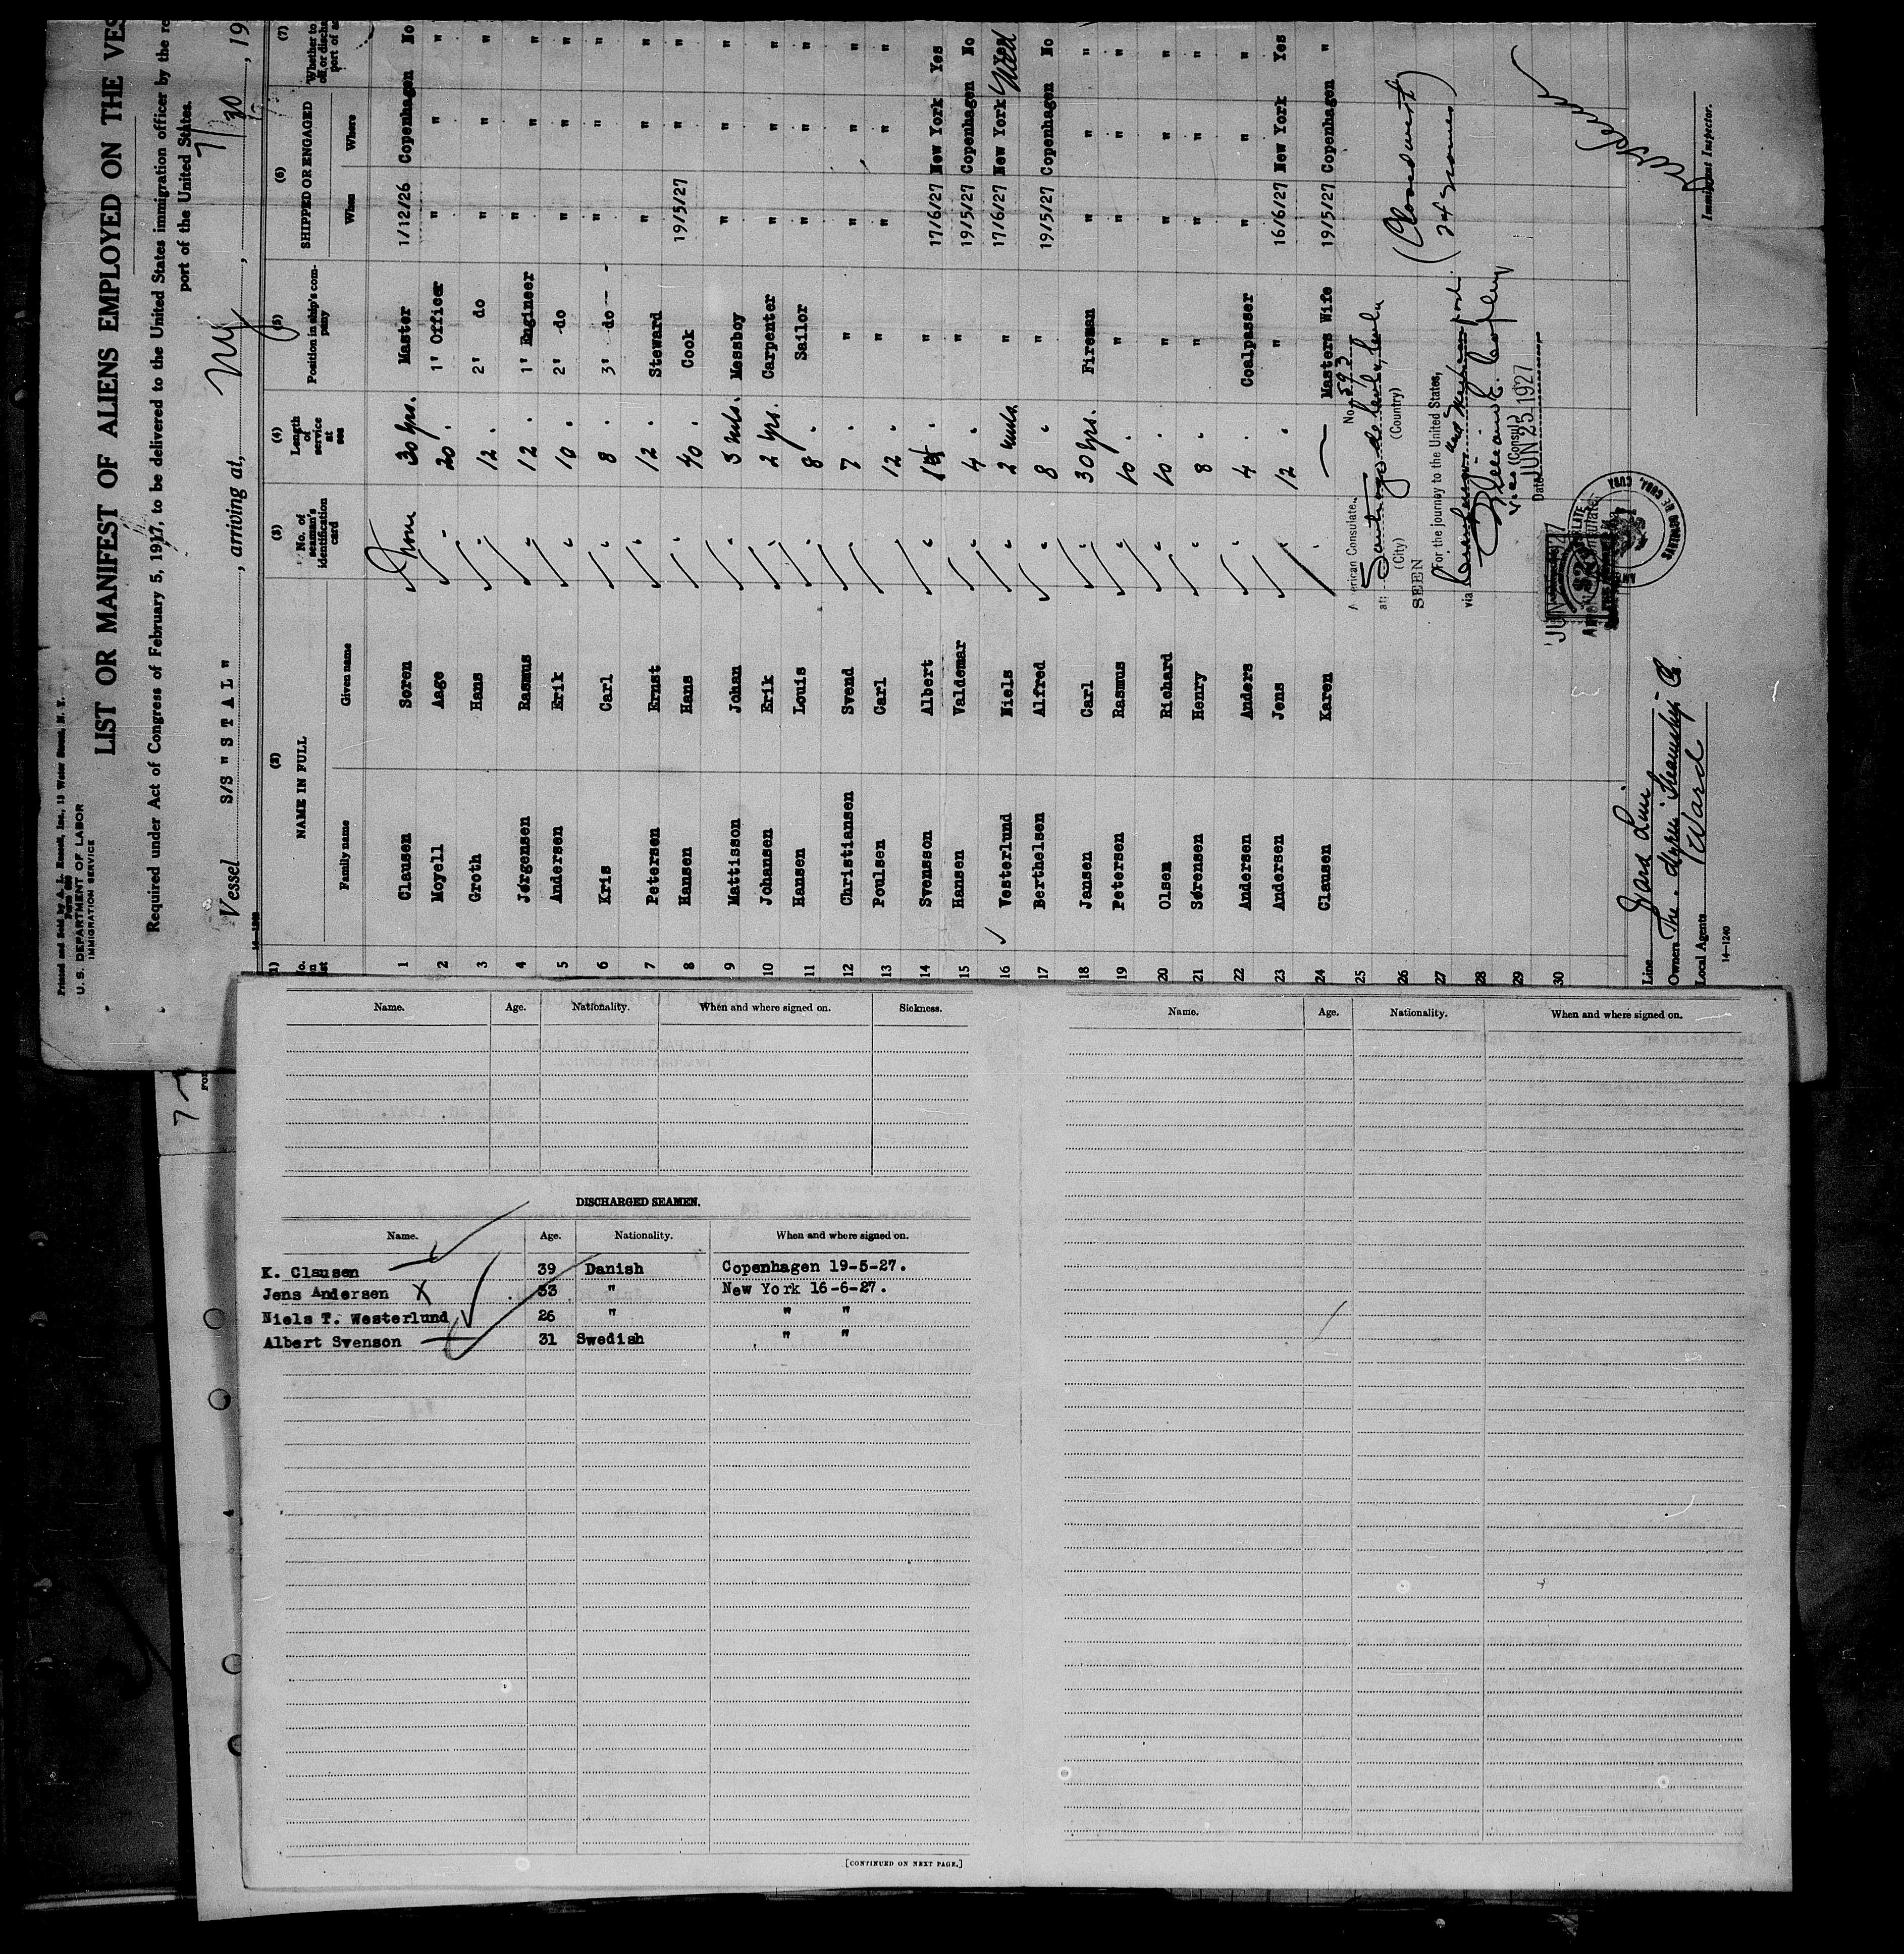 Printed and Sold by A. L. Russell, Inc., 13 Water Street, N. Y.
Form 689
U. S. DEPARTMENT OF LABOR
IMMIGRATION SERVICE
LIST OR MANIFEST OF ALIENS EMPLOYED ON THE VES
Required under Act of Congress of February 5, 1917, to be delivered to the United States immigration officer by the re
port of the United States.
Vessel S/S "STAL", arriving at, NY, 7/30, 19
14-1240
(1) (2) (3) (4) (5) (6) (7)
NAME IN FULL No. of seaman's identification card Length of service at sea Position in ship's company SHIPPED OR ENGAGED Whether to
Family name Given name When Where
1 Clausen Søren None 30 yrs. Master 1/12/26 Copenhagen No
2 Moyell Aage " 20 " 1' Officer " " "
3 Groth Hans " 12 " 2' do " " "
4 Jørgensen Rasmus " 12 " 1' Engineer " " "
5 Andersen Erik " 10 " 2' do " " "
6 Kris Carl " 8 " 3' do " " "
7 Petersen Ernst " 12 " Steward " " "
8 Hansen Hans " 40 " Cook 19/5/27 " "
9 Mattisson Johan " 3 mts. Messboy " " "
10 Johansen Erik " 2 yrs. Carpenter " " "
11 Hansen Louis " 8 " Sailor " " "
12 Christiansen Svend " 7 " " " " "
13 Poulsen Carl " 12 " " " " "
14 Svensson Albert " 14 " " 17/6/27 New York Yes
15 Hansen Valdemar " 4 " " 19/5/27 Copenhagen No
16 Vesterlund Niels " 2 mts. " 17/6/27 New York Yes
17 Berthelsen Alfred " 8 " " 19/5/27 Copenhagen No
18 Jansen Carl " 30 yrs. Fireman " " "
19 Petersen Rasmus " 10 " " " " "
20 Olsen Richard " 10 " " " " "
21 Sørensen Henry " 8 " " " " "
22 Andersen Anders " 4 " Coalpasser " " "
23 Andersen Jens " 12 " " 16/6/27 New York Yes
24 Clausen Karen " — Masters Wife 19/5/27 Copenhagen "
25
26
27
28
29
30
American Consulate. No. 593
at Santiago de Cuba, Cuba
(City) (Country)
SEEN
For the journey to the United States,
via
Vice (Consul)
Date JUN 25 1927
(Closed
Line Ward Line
Owners The Steamship Co.
Local Agents Ward
Immigrant Inspector.
14—1240
Name. Age. Nationality. When and where signed on. Sickness.
DISCHARGED SEAMEN.
Name. Age. Nationality. When and where signed on.
K. Clausen 39 Danish Copenhagen 19-5-27.
Jens Andersen X 33 " New York 16-6-27.
Niels T. Westerlund 26 " " "
Albert Svenson 31 Swedish " "
[CONTINUED ON NEXT PAGE.]
Name. Age. Nationality. When and where signed on.